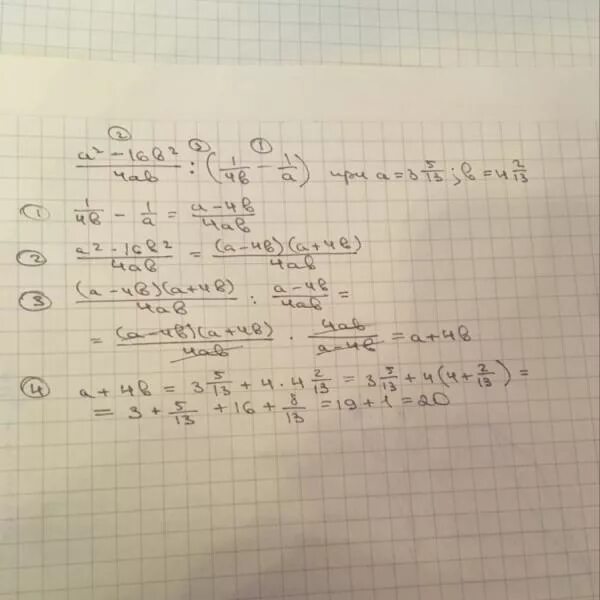 ② ③ ①
(a² - 16b²)/(4ab) : (1/(4b) - 1/a) при a = 3 5/13 ; b = 4 2/13
① 1/(4b) - 1/a = (a - 4b)/(4ab)
② (a² - 16b²)/(4ab) = ((a - 4b)(a + 4b))/(4ab)
③ ((a - 4b)(a + 4b))/(4ab) : (a - 4b)/(4ab) =
= ((a - 4b)(a + 4b))/(4ab) · (4ab)/(a - 4b) = a + 4b
④ a + 4b = 3 5/13 + 4 · 4 2/13 = 3 5/13 + 4(4 + 2/13) =
= 3 + 5/13 + 16 + 8/13 = 19 + 1 = 20